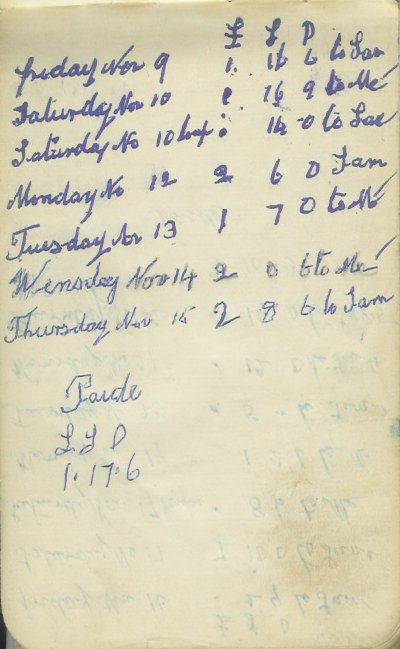 £ S D
Friday Nov 9 1 16 6 to Sam
Saturday Nov 10 " 16 9 to Me
Saturday No 10 " 14 0 to Sam
Monday No 12 2 6 0 Sam
Tuesday No 13 1 7 0 to Me
Wensday Nov 14 2 0 6 to Me
Thursday Nov 15 2 8 6 to Sam
Paide
£ S D
1·17·6